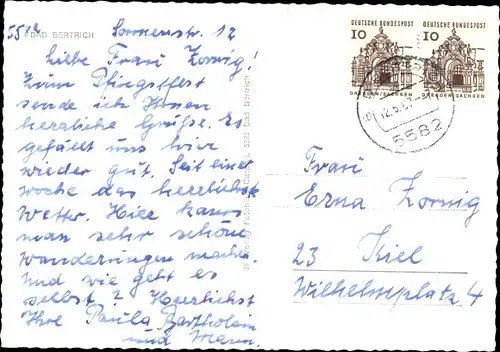 5582 Sonnenstr. 12
BAD BERTRICH
Liebe Frau Zornig!
Zum Pfingstfest
sende ich Ihnen
herzliche Grüße. Es
gefällt uns hier
wieder gut. Seit einer
Woche das herrlichste
Wetter. Hier kann
man sehr schöne
Wanderungen machen.
Und wie geht es
selbst? Herzlichst
Ihre Paula Bartholein
und Mann.
5582 Bad Bertrich
DEUTSCHE BUNDESPOST
10
DRESDEN/SACHSEN
DEUTSCHE BUNDESPOST
10
DRESDEN/SACHSEN
12.5.67
5582
Frau
Erna Zornig
23 Kiel
Wilhelmplatz 4